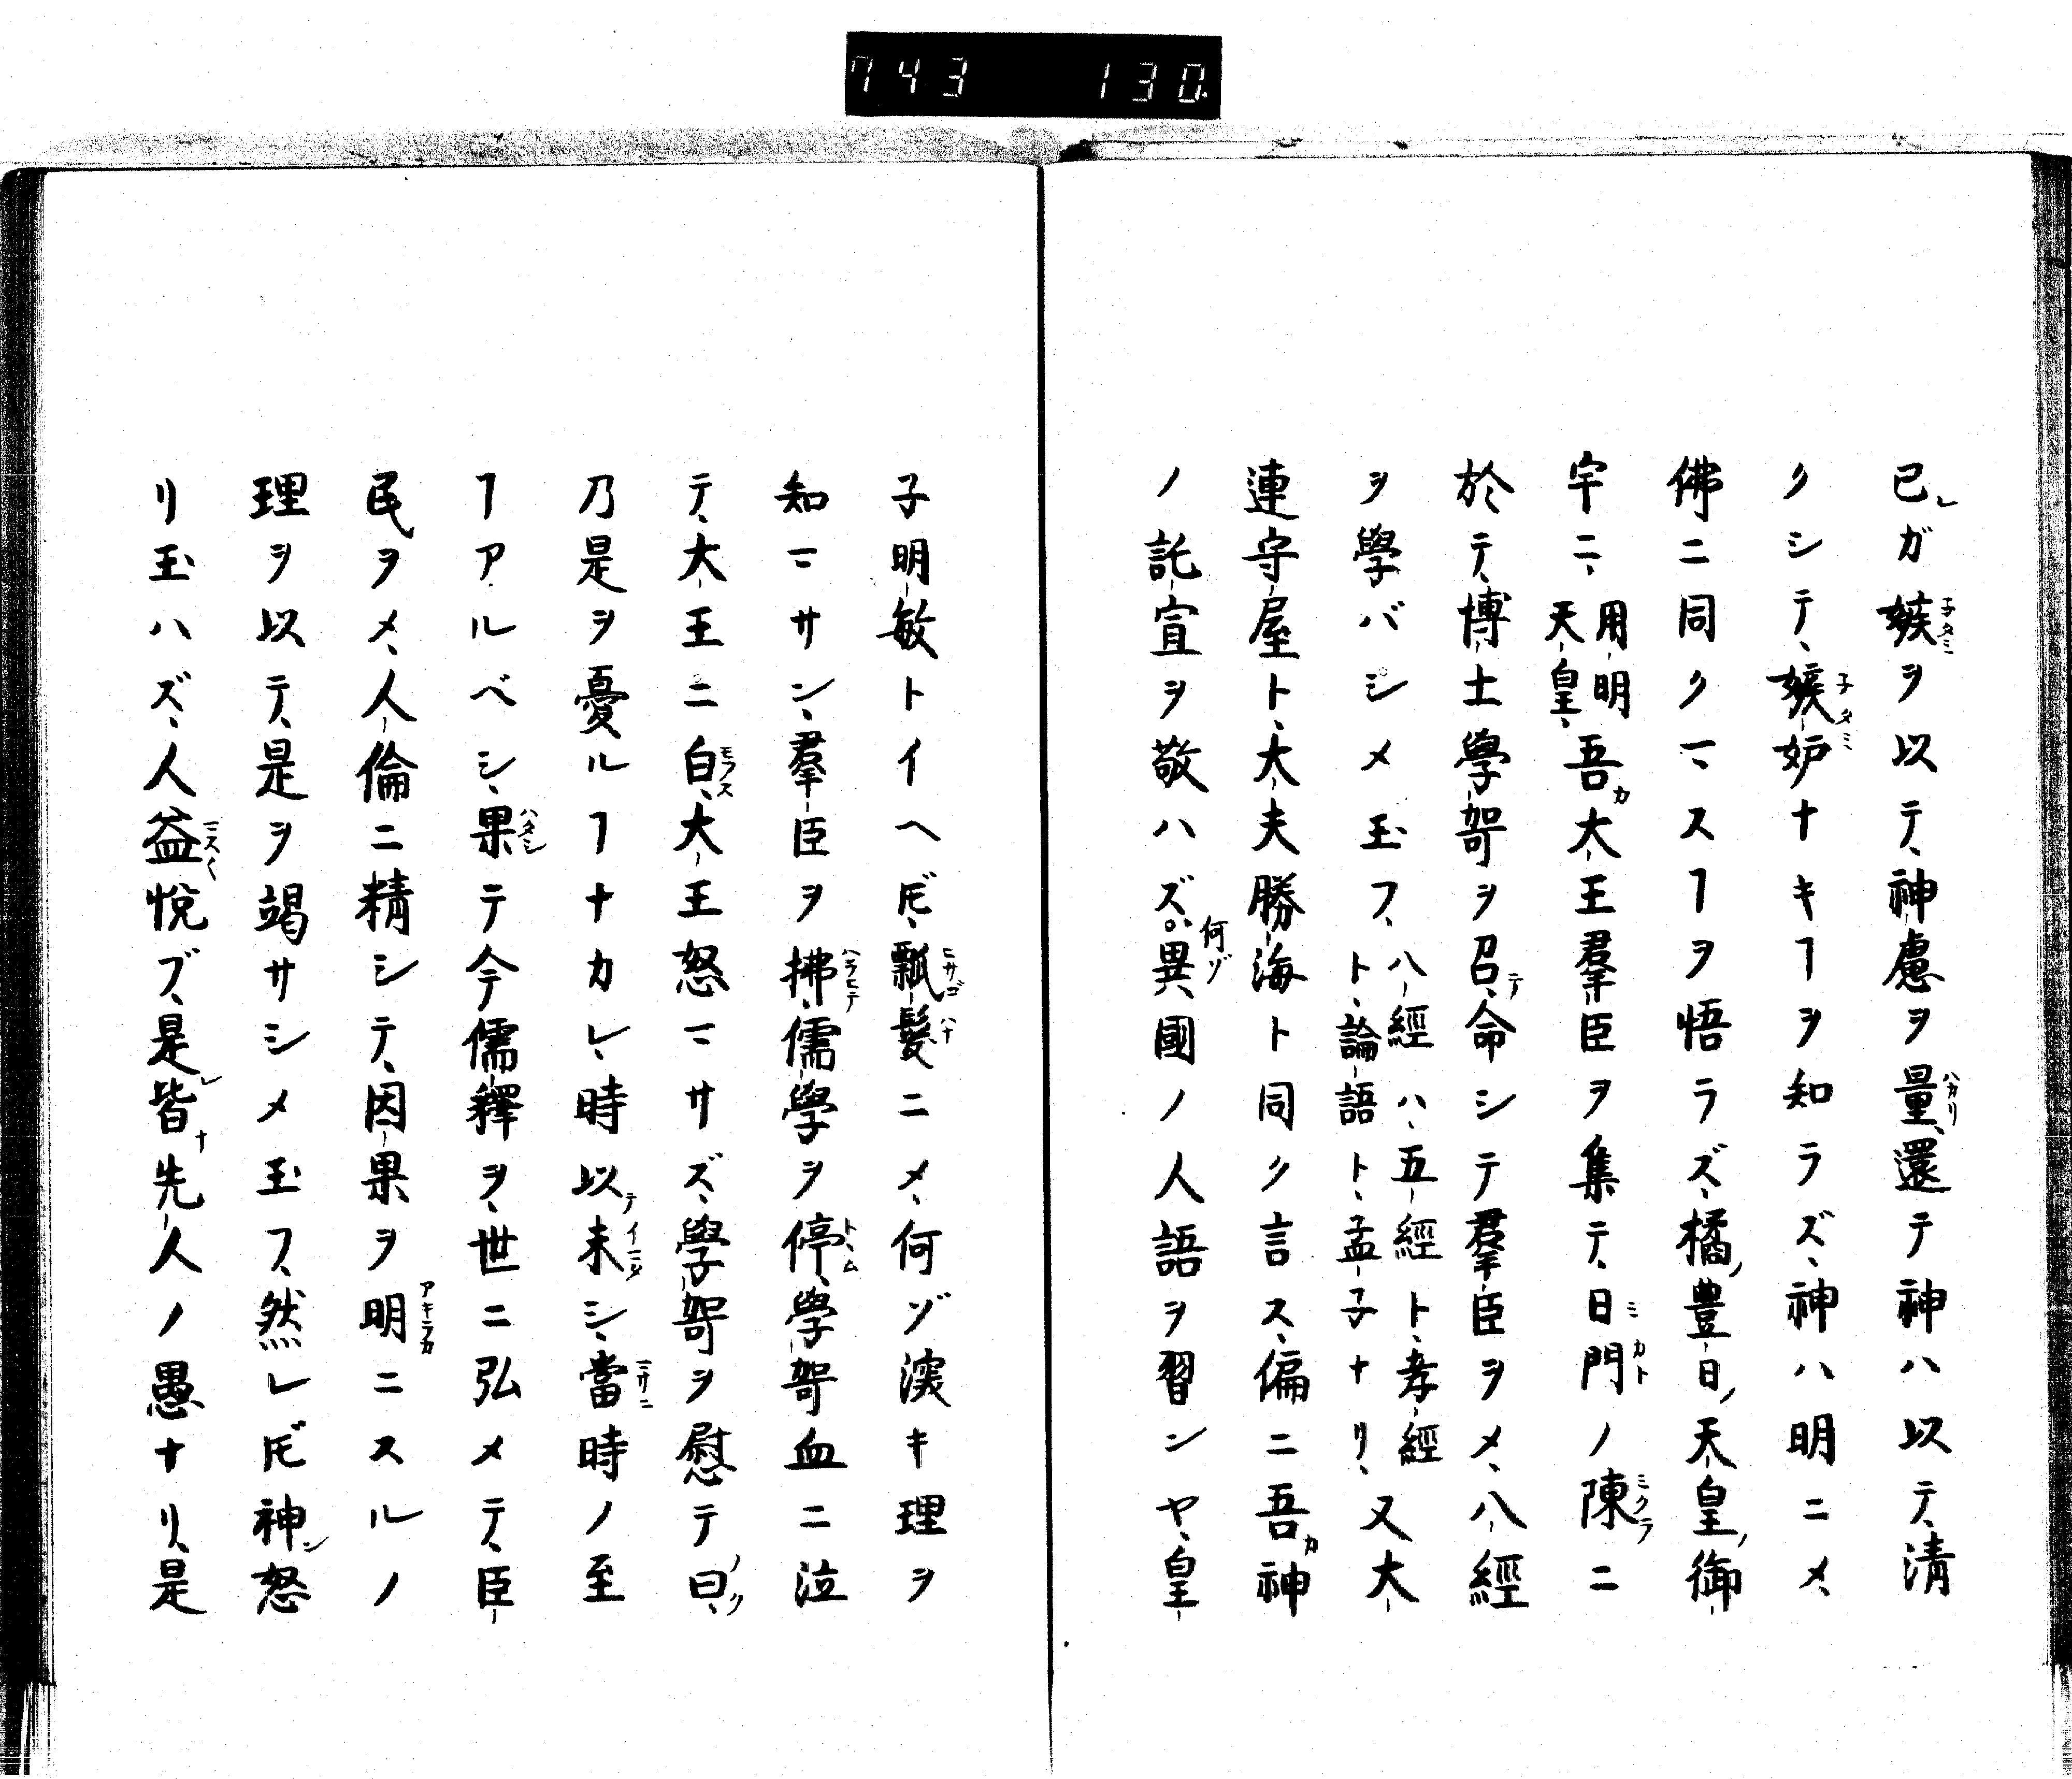 743 130
已レガ嫉子タミヲ以テ、神慮ヲ量ハカリ、還テ神ハ以テ、清
クシテ、嫉妒子タミナキヿヲ知ラズ、神ハ明ニメ、
佛ニ同クマスヿヲ悟ラズ、橘ノ豊日ノ天皇ノ御
宇ニ、用明天皇、吾カ大王羣臣ヲ集テ、日門ミカトノ陳ミクラニ
於テ、博士學哿ヲ召テ、命シテ羣臣ヲメ、八經
ヲ學バシメ玉フ、八經ハ、五經ト、孝經ト、論語ト、孟子ナリ、又大
連守屋ト、大夫勝海ト同ク言ス、偏ニ吾カ神
ノ託宣ヲ敬ハズ。何ゾ異國ノ人語ヲ習ンヤ、皇
子明敏トイヘ𪜈、瓢ヒサゴ髪ハナニメ、何ゾ深キ理ヲ
知マサン、羣臣ヲ拂ハラヒテ、儒學ヲ停トヽム、學哿血ニ泣
テ、大王ニ白モフス、大王怒マサズ、學哿ヲ慰テ曰ノノク、
乃是ヲ憂ルヿナカレ、時以テ未イマタシ、當マサニ時ノ至
ヿアルベシ、果ハタシテ今儒釋ヲ、世ニ弘メテ、臣
民ヲメ、人倫ニ精シテ、因果ヲ明アキラカニスルノ
理ヲ以テ、是ヲ竭サシメ玉フ、然レ𪜈神ン怒
リ玉ハズ、人益マス〱悅ブ、是レ皆ナ先人ノ愚ナリ、是